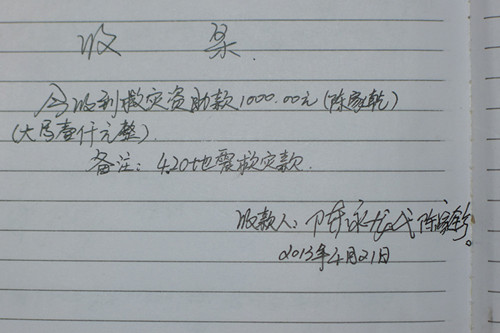 收 条
今收到救灾资助款1000.00元(陈家乾)
(大写壹仟元整).
备注：4.20地震救灾款.
收款人：陈永龙代陈家乾。
2013年4月21日